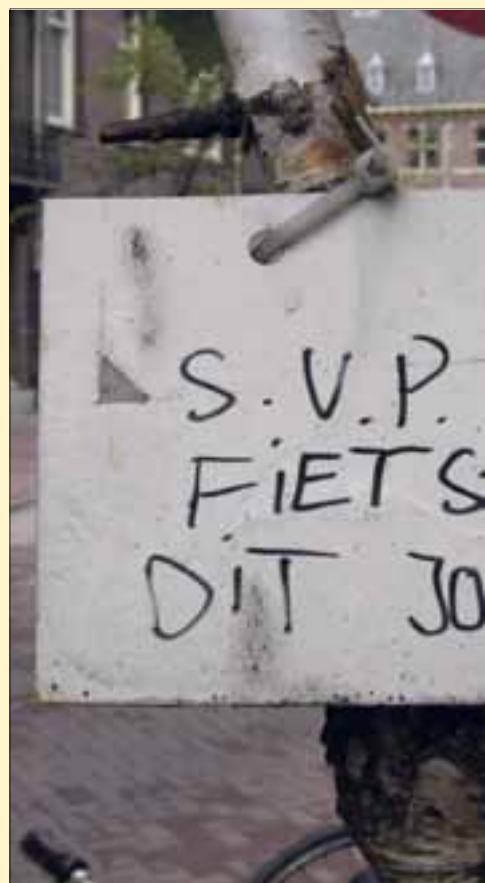 S.V.P.
FiETS
DiT JO